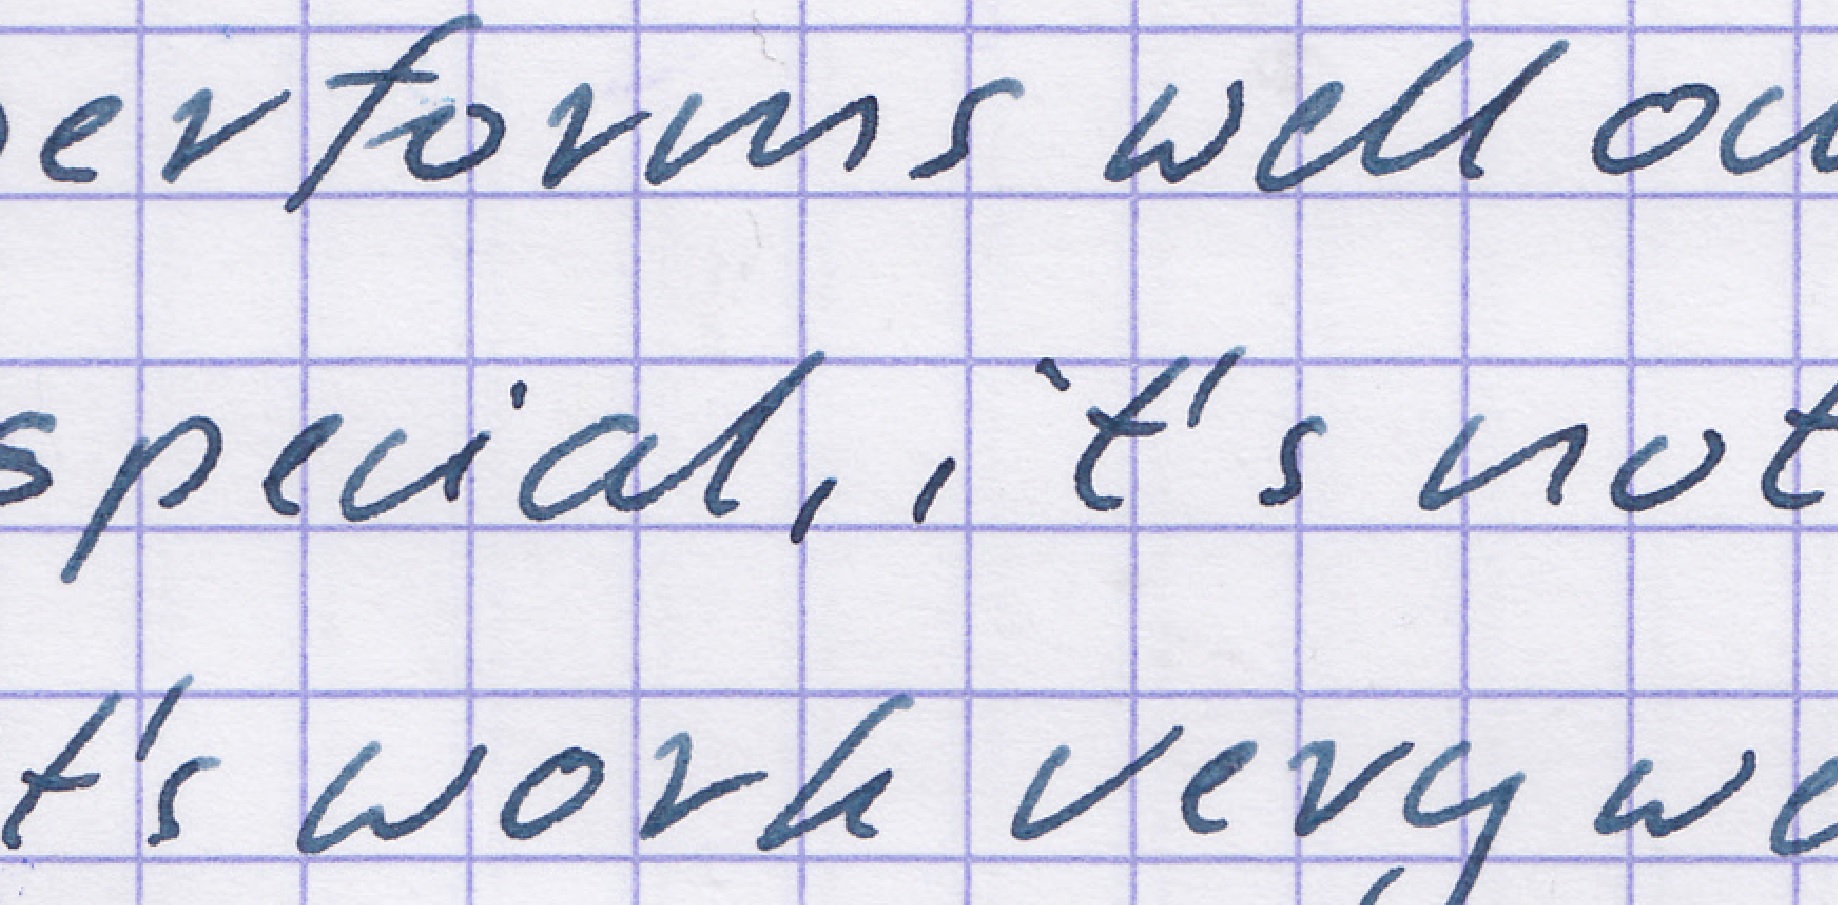 erforms well ou
special, it's not
t's work very we